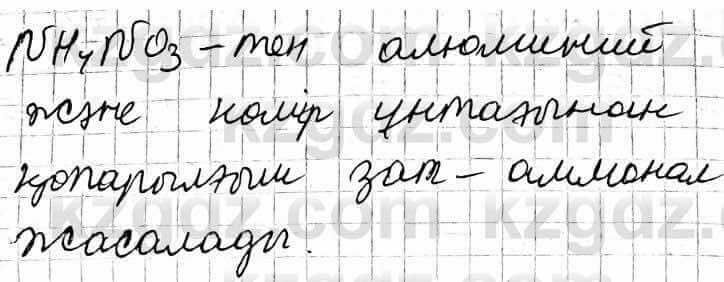 NH₄NO₃ – тен алюминий
және көмір ұнтағынан
қопарылғыш зат – аммонал
жасалады.